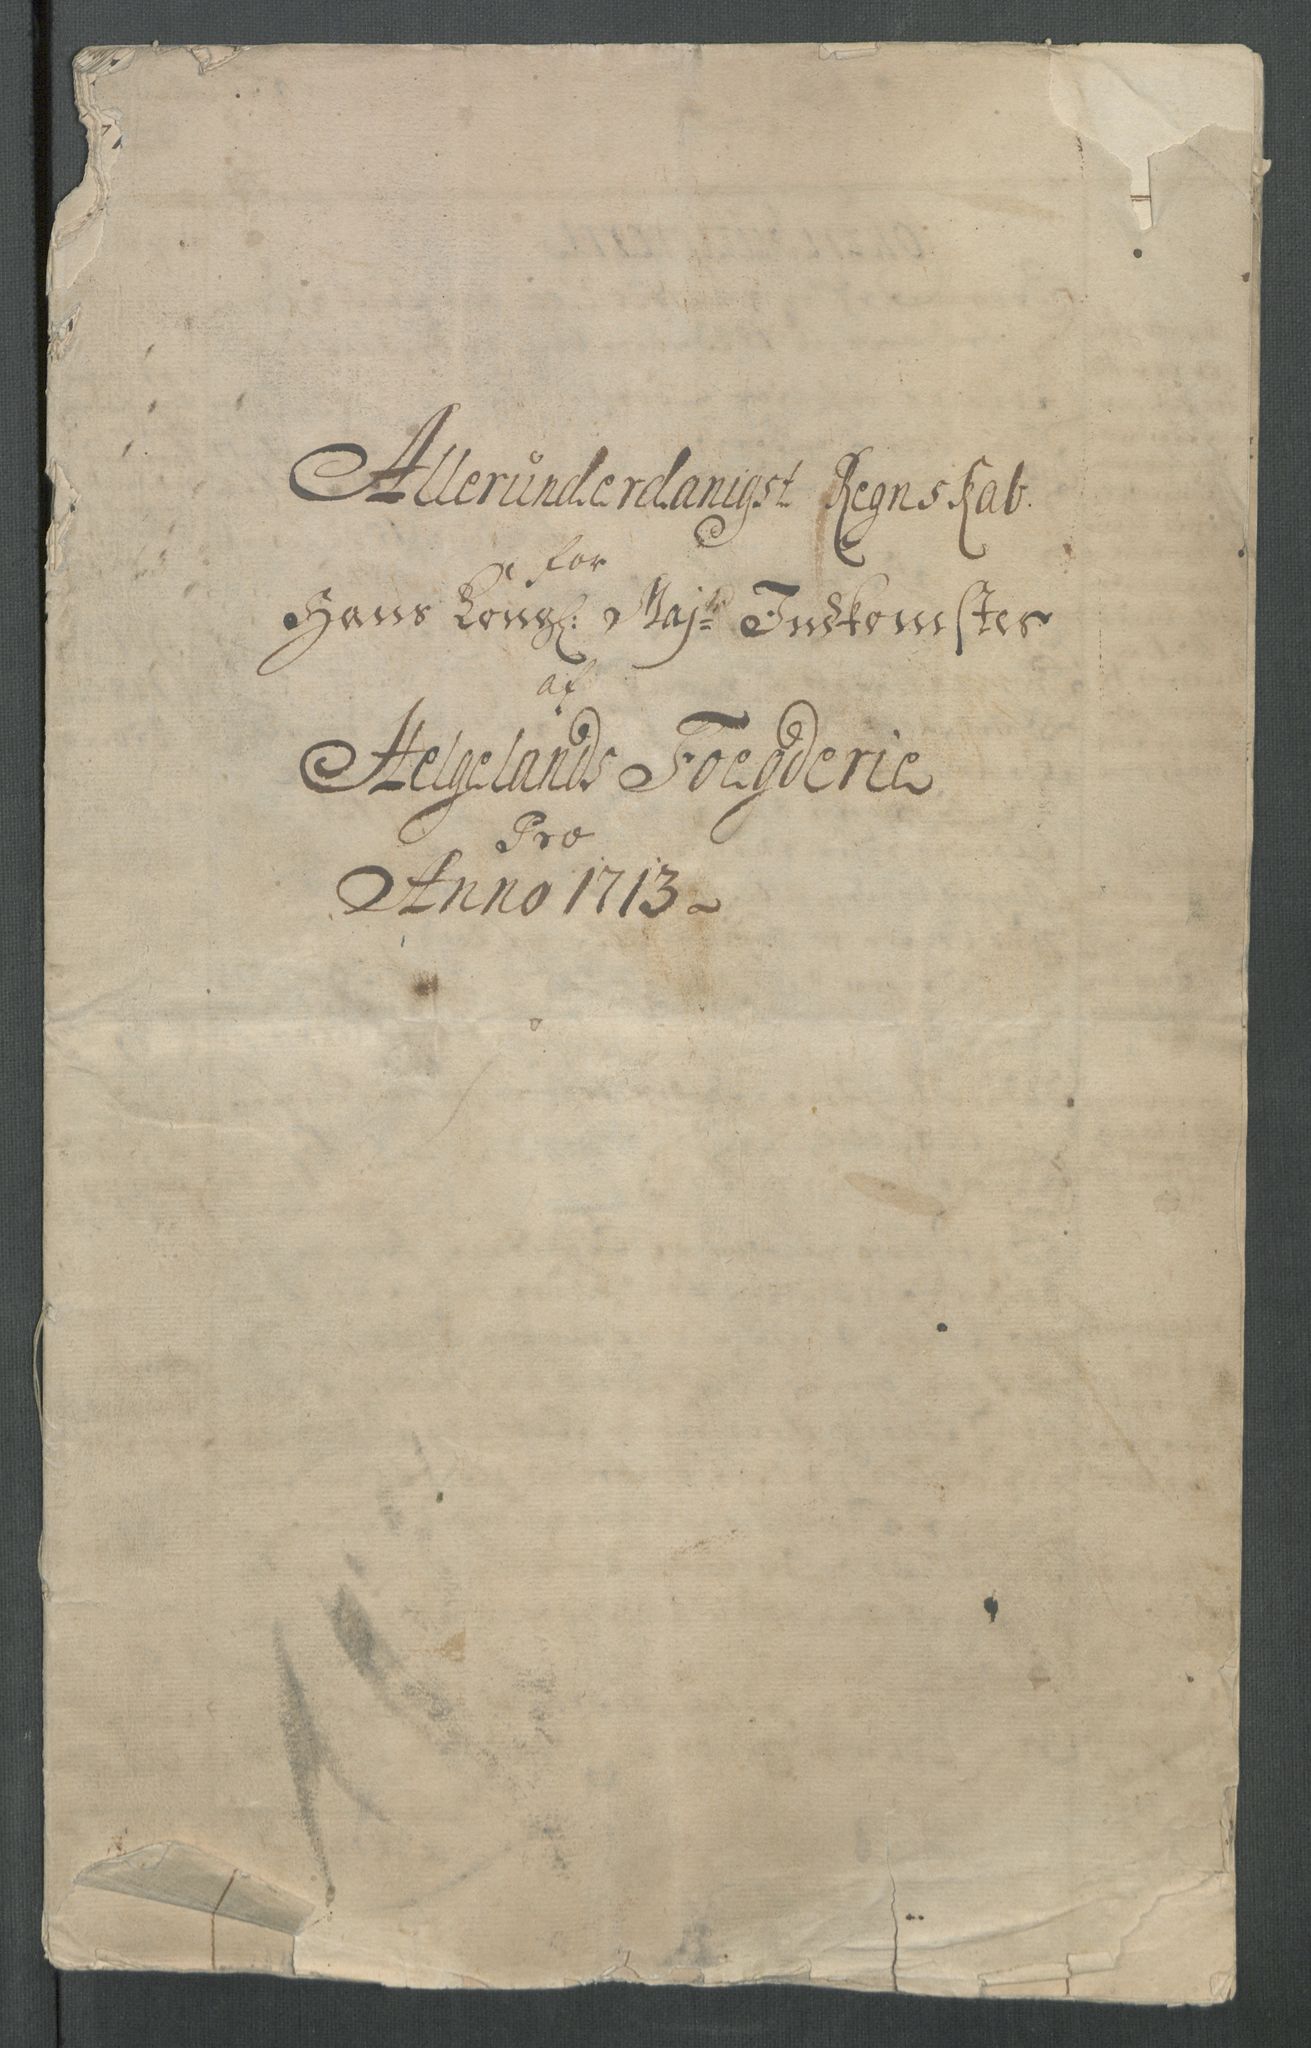 Allerunderdanigst Regnskab
for
Hans Kongl: Majts Indkomster
af
Helgelands Foegderie
Pro
Anno 1713